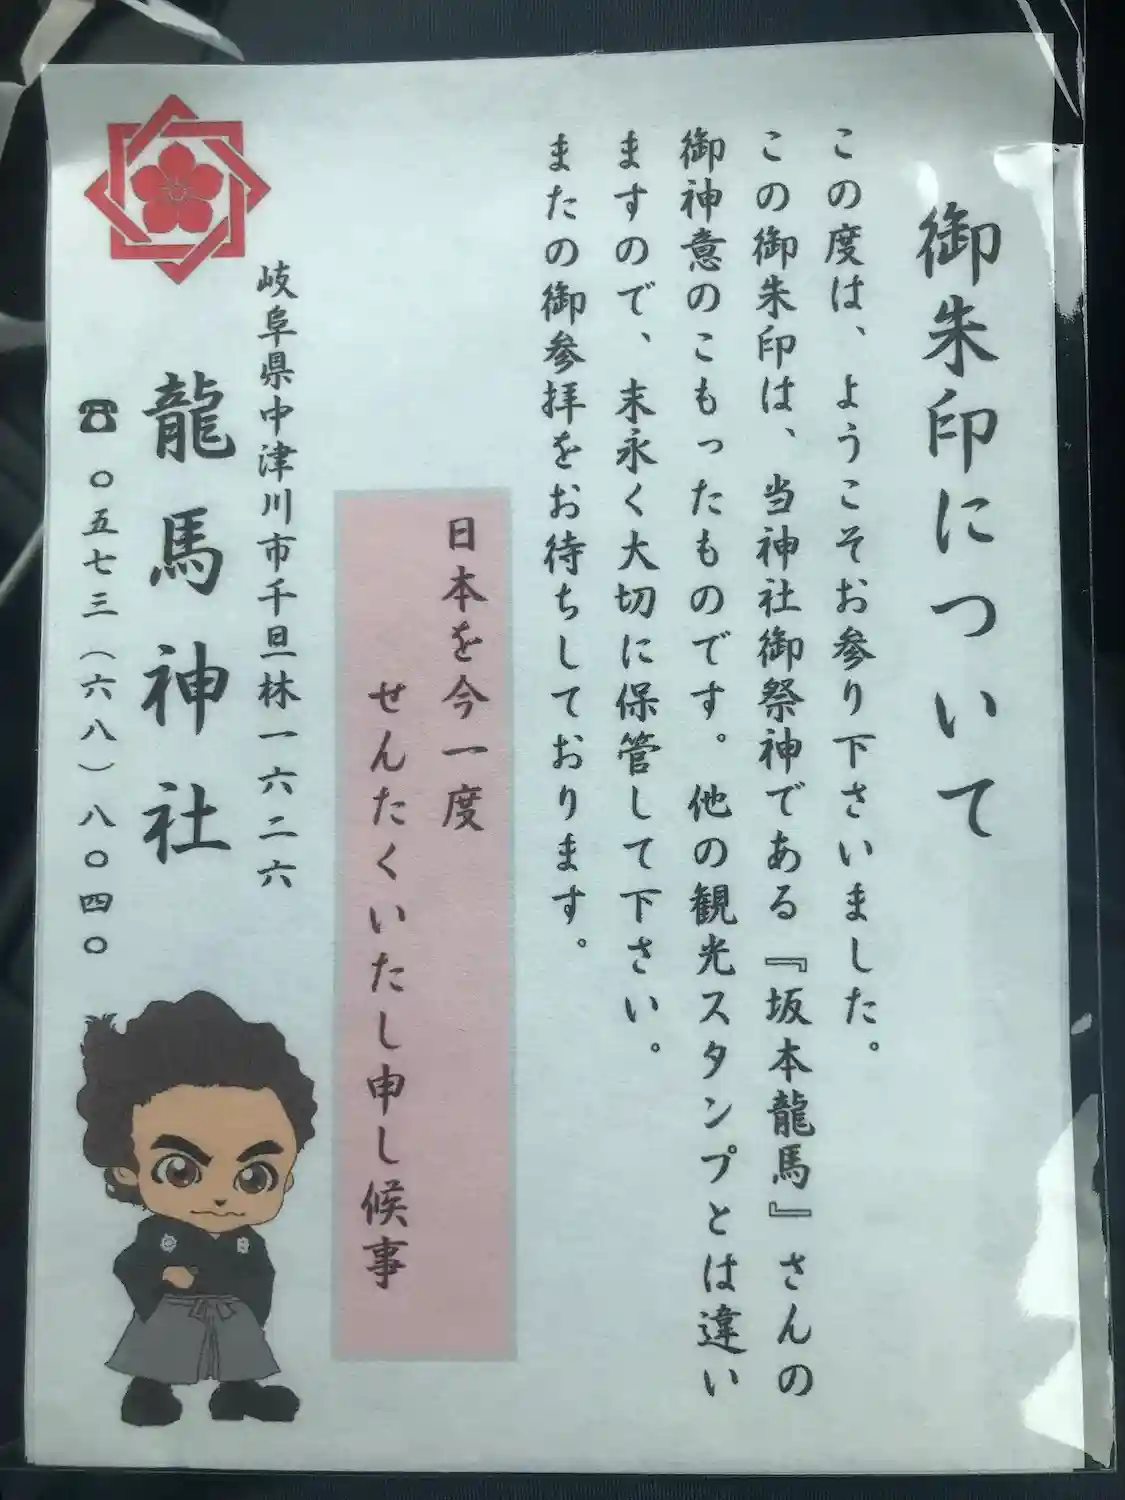 御朱印について
この度は、ようこそお参り下さいました。
この御朱印は、当神社御祭神である『坂本龍馬』さんの
御神意のこもったものです。他の観光スタンプとは違い
ますので、末永く大切に保管して下さい。
またの御参拝をお待ちしております。
日本を今一度
せんたくいたし申し候事
岐阜県中津川市千旦林一六二六
龍馬神社
☎〇五七三（六八）八〇四〇